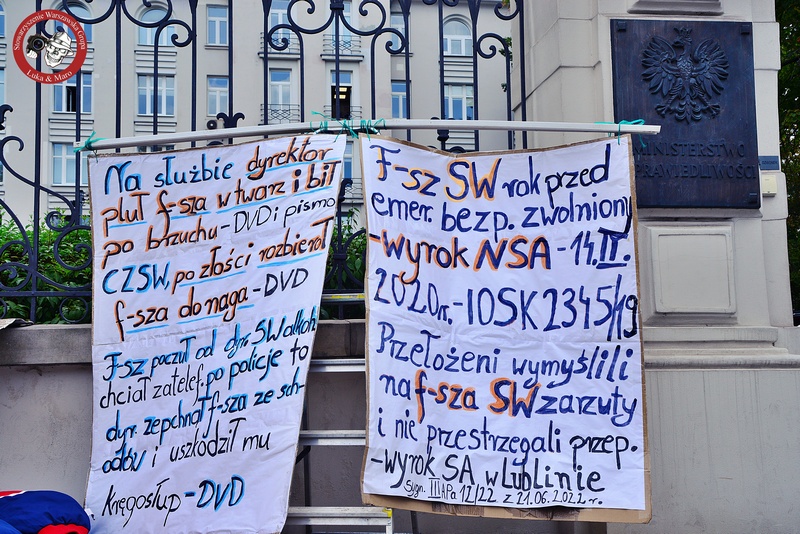 Stowarzyszenie Warszawska Grupa
Luka & Maro
Na służbie dyrektor
pluł f-sza w twarz i bił
po brzuchu-DVD i pismo
CZSW, po złości rozbierał
f-sza do naga-DVD
F-sz poczuł od dyr. SW alkoh.
chciał zatelef. po policję to
dyr. zepchnął f-sza ze sch-
odów i uszkodził mu
kręgosłup-DVD
F-sz SW rok przed
emer. bezp. zwolniony
-wyrok NSA-14.IV.
2020r.-IOSK2345/19
Przełożeni wymyślili
na f-sza SW zarzuty
i nie przestrzegali przep.
-wyrok SA w Lublinie
Sygn. III APa 12/22 z 21.06.2022r.
MINISTERSTWO
SPRAWIEDLIWOŚCI